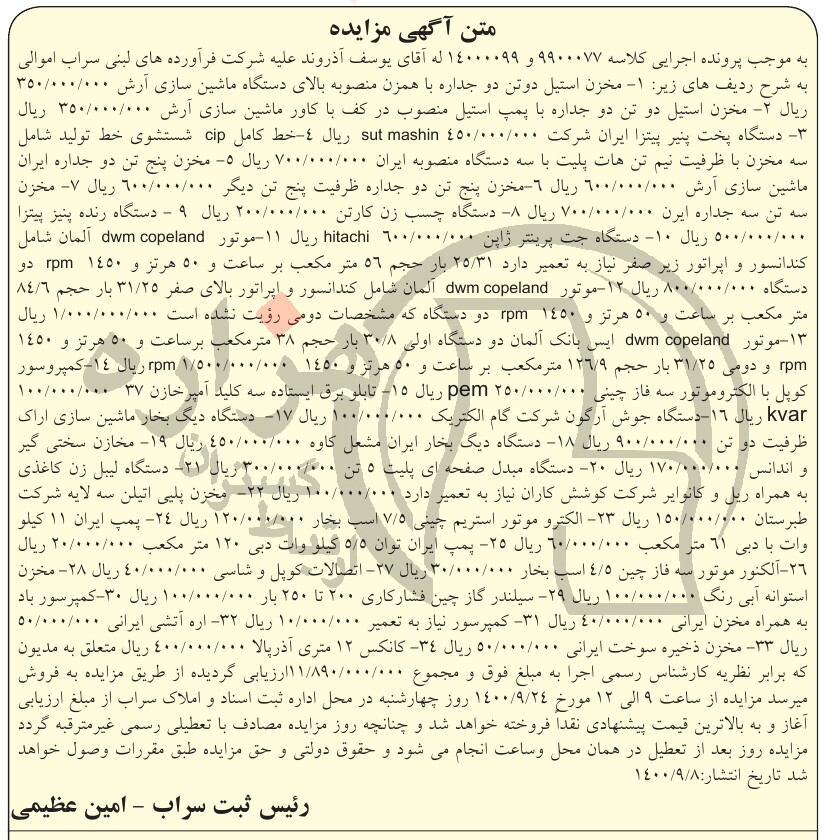 متن آگهی مزایده
به موجب پرونده اجرایی کلاسه ۹۹۰۰۰۷۷ و ۱۴۰۰۰۰۹۹ له آقای یوسف آذروند علیه شرکت فرآورده های لبنی سراب اموالی
به شرح ردیف های زیر: ۱- مخزن استیل دوتن دو جداره با همزن منصوبه بالای دستگاه ماشین سازی آرش ۳۵۰/۰۰۰/۰۰۰
ریال ۲- مخزن استیل دو تن دو جداره با پمپ استیل منصوب در کف با کاور ماشین سازی آرش ۳۵۰/۰۰۰/۰۰۰ ریال
۳- دستگاه پخت پنیر پیتزا ایران شرکت sut mashin ۴۵۰/۰۰۰/۰۰۰ ریال ۴-خط کامل cip شستشوی خط تولید شامل
سه مخزن با ظرفیت نیم تن هات پلیت با سه دستگاه منصوبه ایران ۷۰۰/۰۰۰/۰۰۰ ریال ۵- مخزن پنج تن دو جداره ایران
ماشین سازی آرش ۶۰۰/۰۰۰/۰۰۰ ریال ۶-مخزن پنج تن دو جداره ظرفیت پنج تن دیگر ۶۰۰/۰۰۰/۰۰۰ ریال ۷- مخزن
سه تن سه جداره ایرن ۷۰۰/۰۰۰/۰۰۰ ریال ۸- دستگاه چسب زن کارتن ۲۰۰/۰۰۰/۰۰۰ ریال ۹ - دستگاه رنده پنیز پیتزا
۵۰۰/۰۰۰/۰۰۰ ریال ۱۰- دستگاه جت پرینتر ژاپن hitachi ۶۰۰/۰۰۰/۰۰۰ ریال ۱۱-موتور dwm copeland آلمان شامل
کندانسور و اپراتور زیر صفر نیاز به تعمیر دارد ۲۵/۳۱ بار حجم ۵۶ متر مکعب بر ساعت و ۵۰ هرتز و ۱۴۵۰ rpm دو
دستگاه ۸۰۰/۰۰۰/۰۰۰ ریال ۱۲-موتور dwm copeland آلمان شامل کندانسور و اپراتور بالای صفر ۳۱/۲۵ بار حجم ۸۴/۶
متر مکعب بر ساعت و ۵۰ هرتز و ۱۴۵۰ rpm دو دستگاه که مشخصات دومی رؤیت نشده است ۱/۰۰۰/۰۰۰/۰۰۰ ریال
۱۳-موتور dwm copeland ایس بانک آلمان دو دستگاه اولی ۳۰/۸ بار حجم ۳۸ مترمکعب برساعت و ۵۰ هرتز و ۱۴۵۰
rpm و دومی ۳۱/۲۵ بار حجم ۱۲۶/۹ مترمکعب بر ساعت و ۵۰ هرتز و ۱۴۵۰ rpm ۱/۵۰۰/۰۰۰/۰۰۰ ریال ۱۴-کمپروسور
کوپل با الکتروموتور سه فاز چینی pem ۲۵۰/۰۰۰/۰۰۰ ریال ۱۵- تابلو برق ایستاده سه کلید آمپرخازن ۳۷ ۱۰۰/۰۰۰/۰۰۰
kvar ریال ۱۶-دستگاه جوش آرگون شرکت گام الکتریک ۱۰۰/۰۰۰/۰۰۰ ریال ۱۷- دستگاه دیگ بخار ماشین سازی اراک
ظرفیت دو تن ۹۰۰/۰۰۰/۰۰۰ ریال ۱۸- دستگاه دیگ بخار ایران مشعل کاوه ۴۵۰/۰۰۰/۰۰۰ ریال ۱۹- مخازن سختی گیر
و اندانس ۱۷۰/۰۰۰/۰۰۰ ریال ۲۰- دستگاه مبدل صفحه ای پلیت ۵ تن ۳۰۰/۰۰۰/۰۰۰ ریال ۲۱- دستگاه لیبل زن کاغذی
به همراه ریل و کانوایر شرکت کوشش کاران نیاز به تعمیر دارد ۱۰۰/۰۰۰/۰۰۰ ریال ۲۲- مخزن پلیی اتیلن سه لایه شرکت
طبرستان ۱۵۰/۰۰۰/۰۰۰ ریال ۲۳- الکترو موتور استریم چینی ۷/۵ اسب بخار ۱۲۰/۰۰۰/۰۰۰ ریال ۲۴- پمپ ایران ۱۱ کیلو
وات با دبی ۶۱ متر مکعب ۶۰/۰۰۰/۰۰۰ ریال ۲۵- پمپ ایران توان ۵/۵ کیلو وات دبی ۱۲۰ متر مکعب ۲۰/۰۰۰/۰۰۰ ریال
۲۶-آلکنور موتور سه فاز چین ۴/۵ اسب بخار ۳۰/۰۰۰/۰۰۰ ریال ۲۷- اتصالات کوپل و شاسی ۴۰/۰۰۰/۰۰۰ ریال ۲۸- مخزن
استوانه آبی رنگ ۱۰۰/۰۰۰/۰۰۰ ریال ۲۹- سیلندر گاز چین فشارکاری ۲۰۰ تا ۲۵۰ بار ۱۰۰/۰۰۰/۰۰۰ ریال ۳۰-کمپرسور باد
به همراه مخزن ایرانی ۴۰/۰۰۰/۰۰۰ ریال ۳۱- کمپرسور نیاز به تعمیر ۱۰/۰۰۰/۰۰۰ ریال ۳۲- اره آتشی ایرانی ۵۰/۰۰۰/۰۰۰
ریال ۳۳- مخزن ذخیره سوخت ایرانی ۵۰/۰۰۰/۰۰۰ ریال ۳۴- کانکس ۱۲ متری آذرپالا ۴۰۰/۰۰۰/۰۰۰ ریال متعلق به مدیون
که برابر نظریه کارشناس رسمی اجرا به مبلغ فوق و مجموع ۱۱/۸۹۰/۰۰۰/۰۰۰ارزیابی گردیده از طریق مزایده به فروش
میرسد مزایده از ساعت ۹ الی ۱۲ مورخ ۱۴۰۰/۹/۲۴ روز چهارشنبه در محل اداره ثبت اسناد و املاک سراب از مبلغ ارزیابی
آغاز و به بالاترین قیمت پیشنهادی نقداً فروخته خواهد شد و چنانچه روز مزایده مصادف با تعطیلی رسمی غیرمترقبه گردد
مزایده روز بعد از تعطیل در همان محل وساعت انجام می شود و حقوق دولتی و حق مزایده طبق مقررات وصول خواهد
شد تاریخ انتشار:۱۴۰۰/۹/۸
رئیس ثبت سراب - امین عظیمی